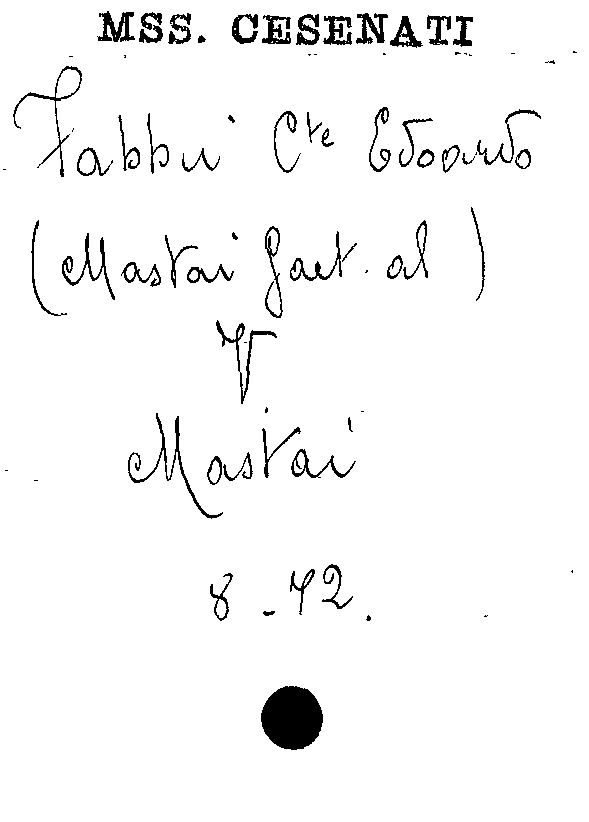 MSS. CESENATI
Fabbri Cte Edoardo
(Mastai Gaet. al)
V
Mastai
8 - 72.